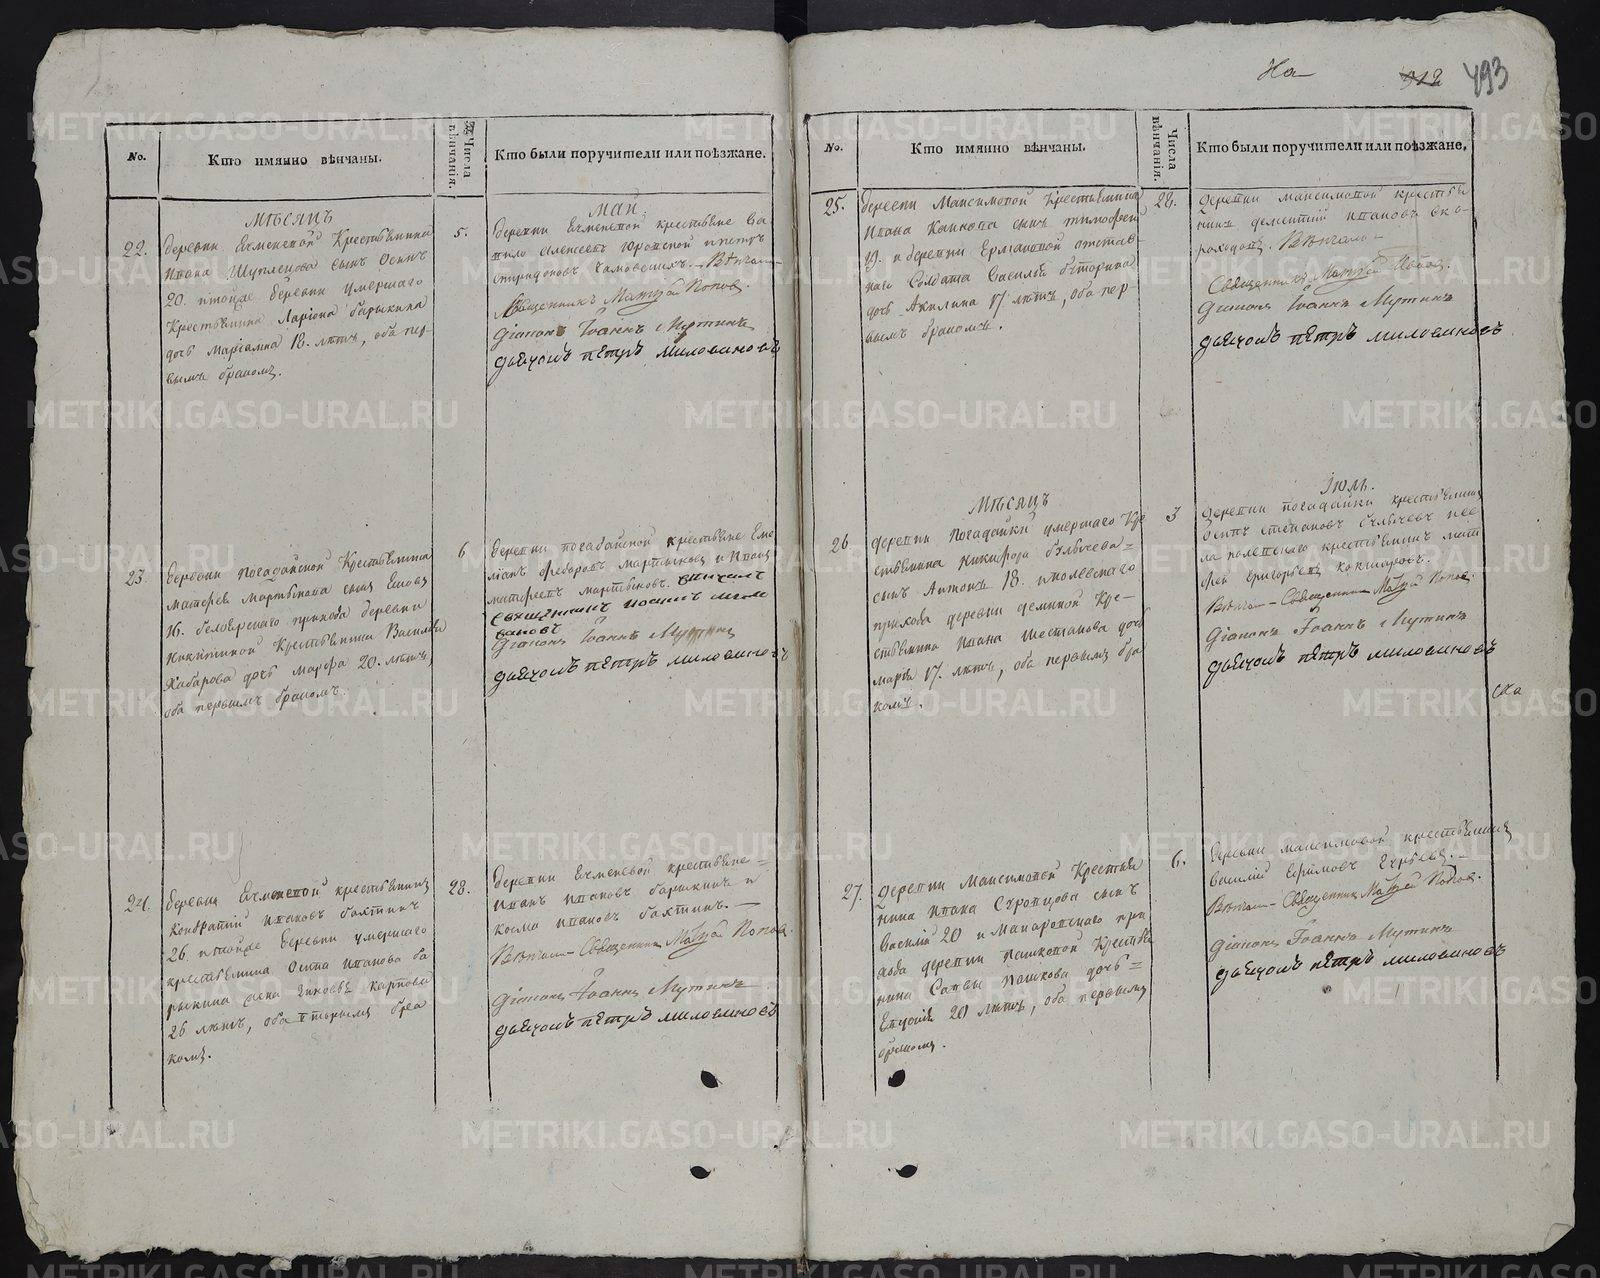 На
912
493
No.
Кто имянно вѣнчаны.
Числа вѣнчанія.
Кто были поручители или поѣзжане.
Мѣсяцъ
Май.
22.
деревни Ячменевой Крестьянина
Ивана Шуплецова сынъ Осипъ
20. и тойже деревни умершаго
Крестьянина Ларіона барыкина
дочь Маріамна 18. лѣтъ, оба пер-
вымъ бракомъ.
5.
деревни Ячменевой крестьяне Га
Вѣнчали
Священникъ Матѳей Поповъ.
Діаконъ Іоаннъ Мутинъ
дьячокъ пѣтръ миловиновъ
23.
деревни Погадайской Крестьянина
Матвея Мартынова сынъ
16. белоярскаго прихода деревни
Никитиной Крестьянина Василья
Хабарова дочь Марфа 20. лѣтъ,
оба первымъ бракомъ.
6
деревни погадайской крестьяне Еме
ліанъ Федоровъ Мартыновъ и Иванъ
матвеевъ мартыновъ. венчалъ
священникъ иоаннъ
Діаконъ Іоаннъ Мутинъ
дьячокъ пѣтръ миловиновъ
24.
деревни Ячменевой крестьянинъ
Кондратій Ивановъ бахтинъ
26 и тойже деревни умершаго
крестьянина Осипа Иванова ба
рыкина жена Карпова
26 лѣтъ, оба вторымъ бра
комъ.
28.
деревни Ячменевой крестьяне=
Иванъ Ивановъ барыкинъ и
косма ивановъ бахтинъ.
Вѣнчали - Священникъ Матѳей Поповъ.
Діаконъ Іоаннъ Мутинъ
дьячокъ пѣтръ миловиновъ
No.
Кто имянно вѣнчаны.
Числа вѣнчанія.
Кто были поручители или поѣзжане.
25.
деревни Максимовой Крестьянина
Ивана сынъ тимофей
19. и деревни Ермаковой отстав-
наго Солдата Василья
дочь Акилина 17 лѣтъ, оба пер-
вымъ бракомъ.
28.
деревни максимовой крестья
нинъ дементій ивановъ ско-
роходовъ. Вѣнчали-
Священникъ Матѳей Поповъ.
Діаконъ Іоаннъ Мутинъ
дьячокъ пѣтръ миловиновъ
Мѣсяцъ
Іюль.
26.
деревни Погадайки умершаго Кре
стьянина Никифора булычева=
сынъ Антонъ 18. и
прихода деревни деминой Кре-
стьянина Ивана Шестакова дочь
марія 17. лѣтъ, оба первымъ бра
комъ.
3
деревни погадайки крестьянинъ
Осипъ степановъ булычевъ
крестьянинъ мат
фей григорьевъ
Вѣнчали - Священникъ Матѳей Поповъ.
Діаконъ Іоаннъ Мутинъ
дьячокъ пѣтръ миловиновъ
ска
27.
деревни Максимовой Крестья
нина Ивана сынъ
Василій 20 и Макаровскаго при
хода деревни пашковой Крестья
нина Савы Пашкова дочь=
20 лѣтъ, оба первымъ
бракомъ.
6.
деревни максимовой крестьянинъ
василій Ефимовъ
Вѣнчали - Священникъ Матѳей Поповъ.
Діаконъ Іоаннъ Мутинъ
дьячокъ пѣтръ миловиновъ
METRIKI.GASO-URAL.RU